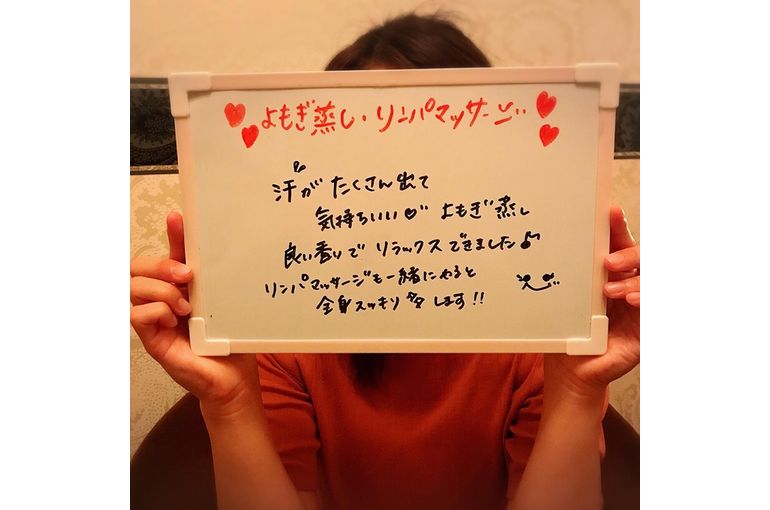 よもぎ蒸し・リンパマッサージ
汗がたくさん出て
気持ちいい♡よもぎ蒸し
良い香りでリラックスできました♪
リンパマッサージも一緒にやると
全身スッキリします!!